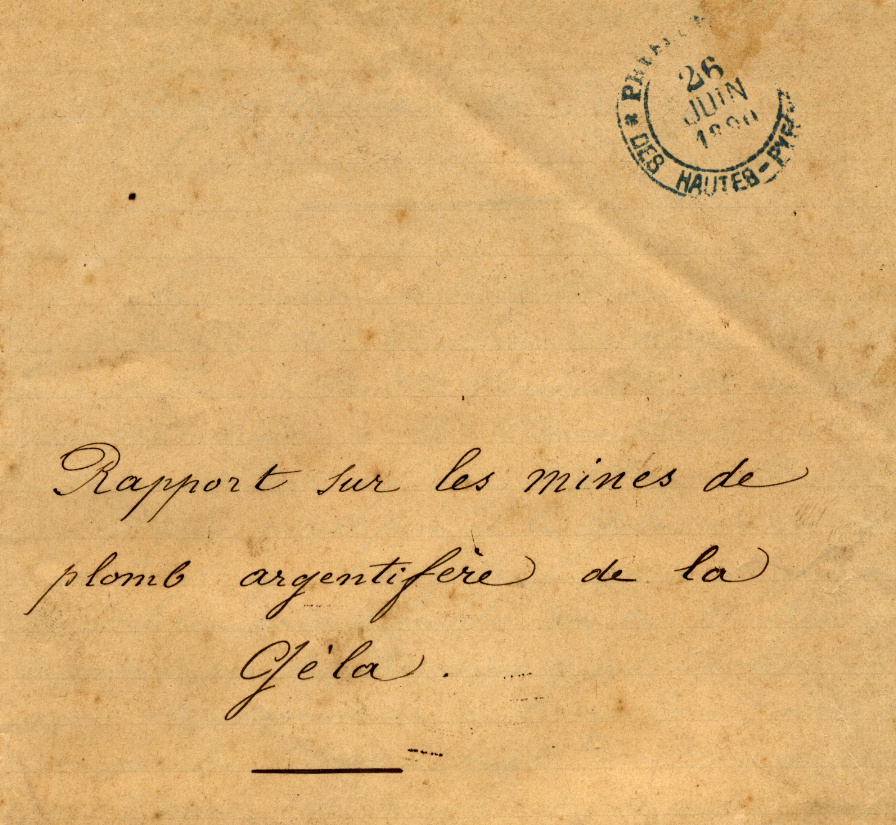 26
JUIN
DES HAUTES-
Rapport sur les mines de
plomb argentifère de la
Géla.